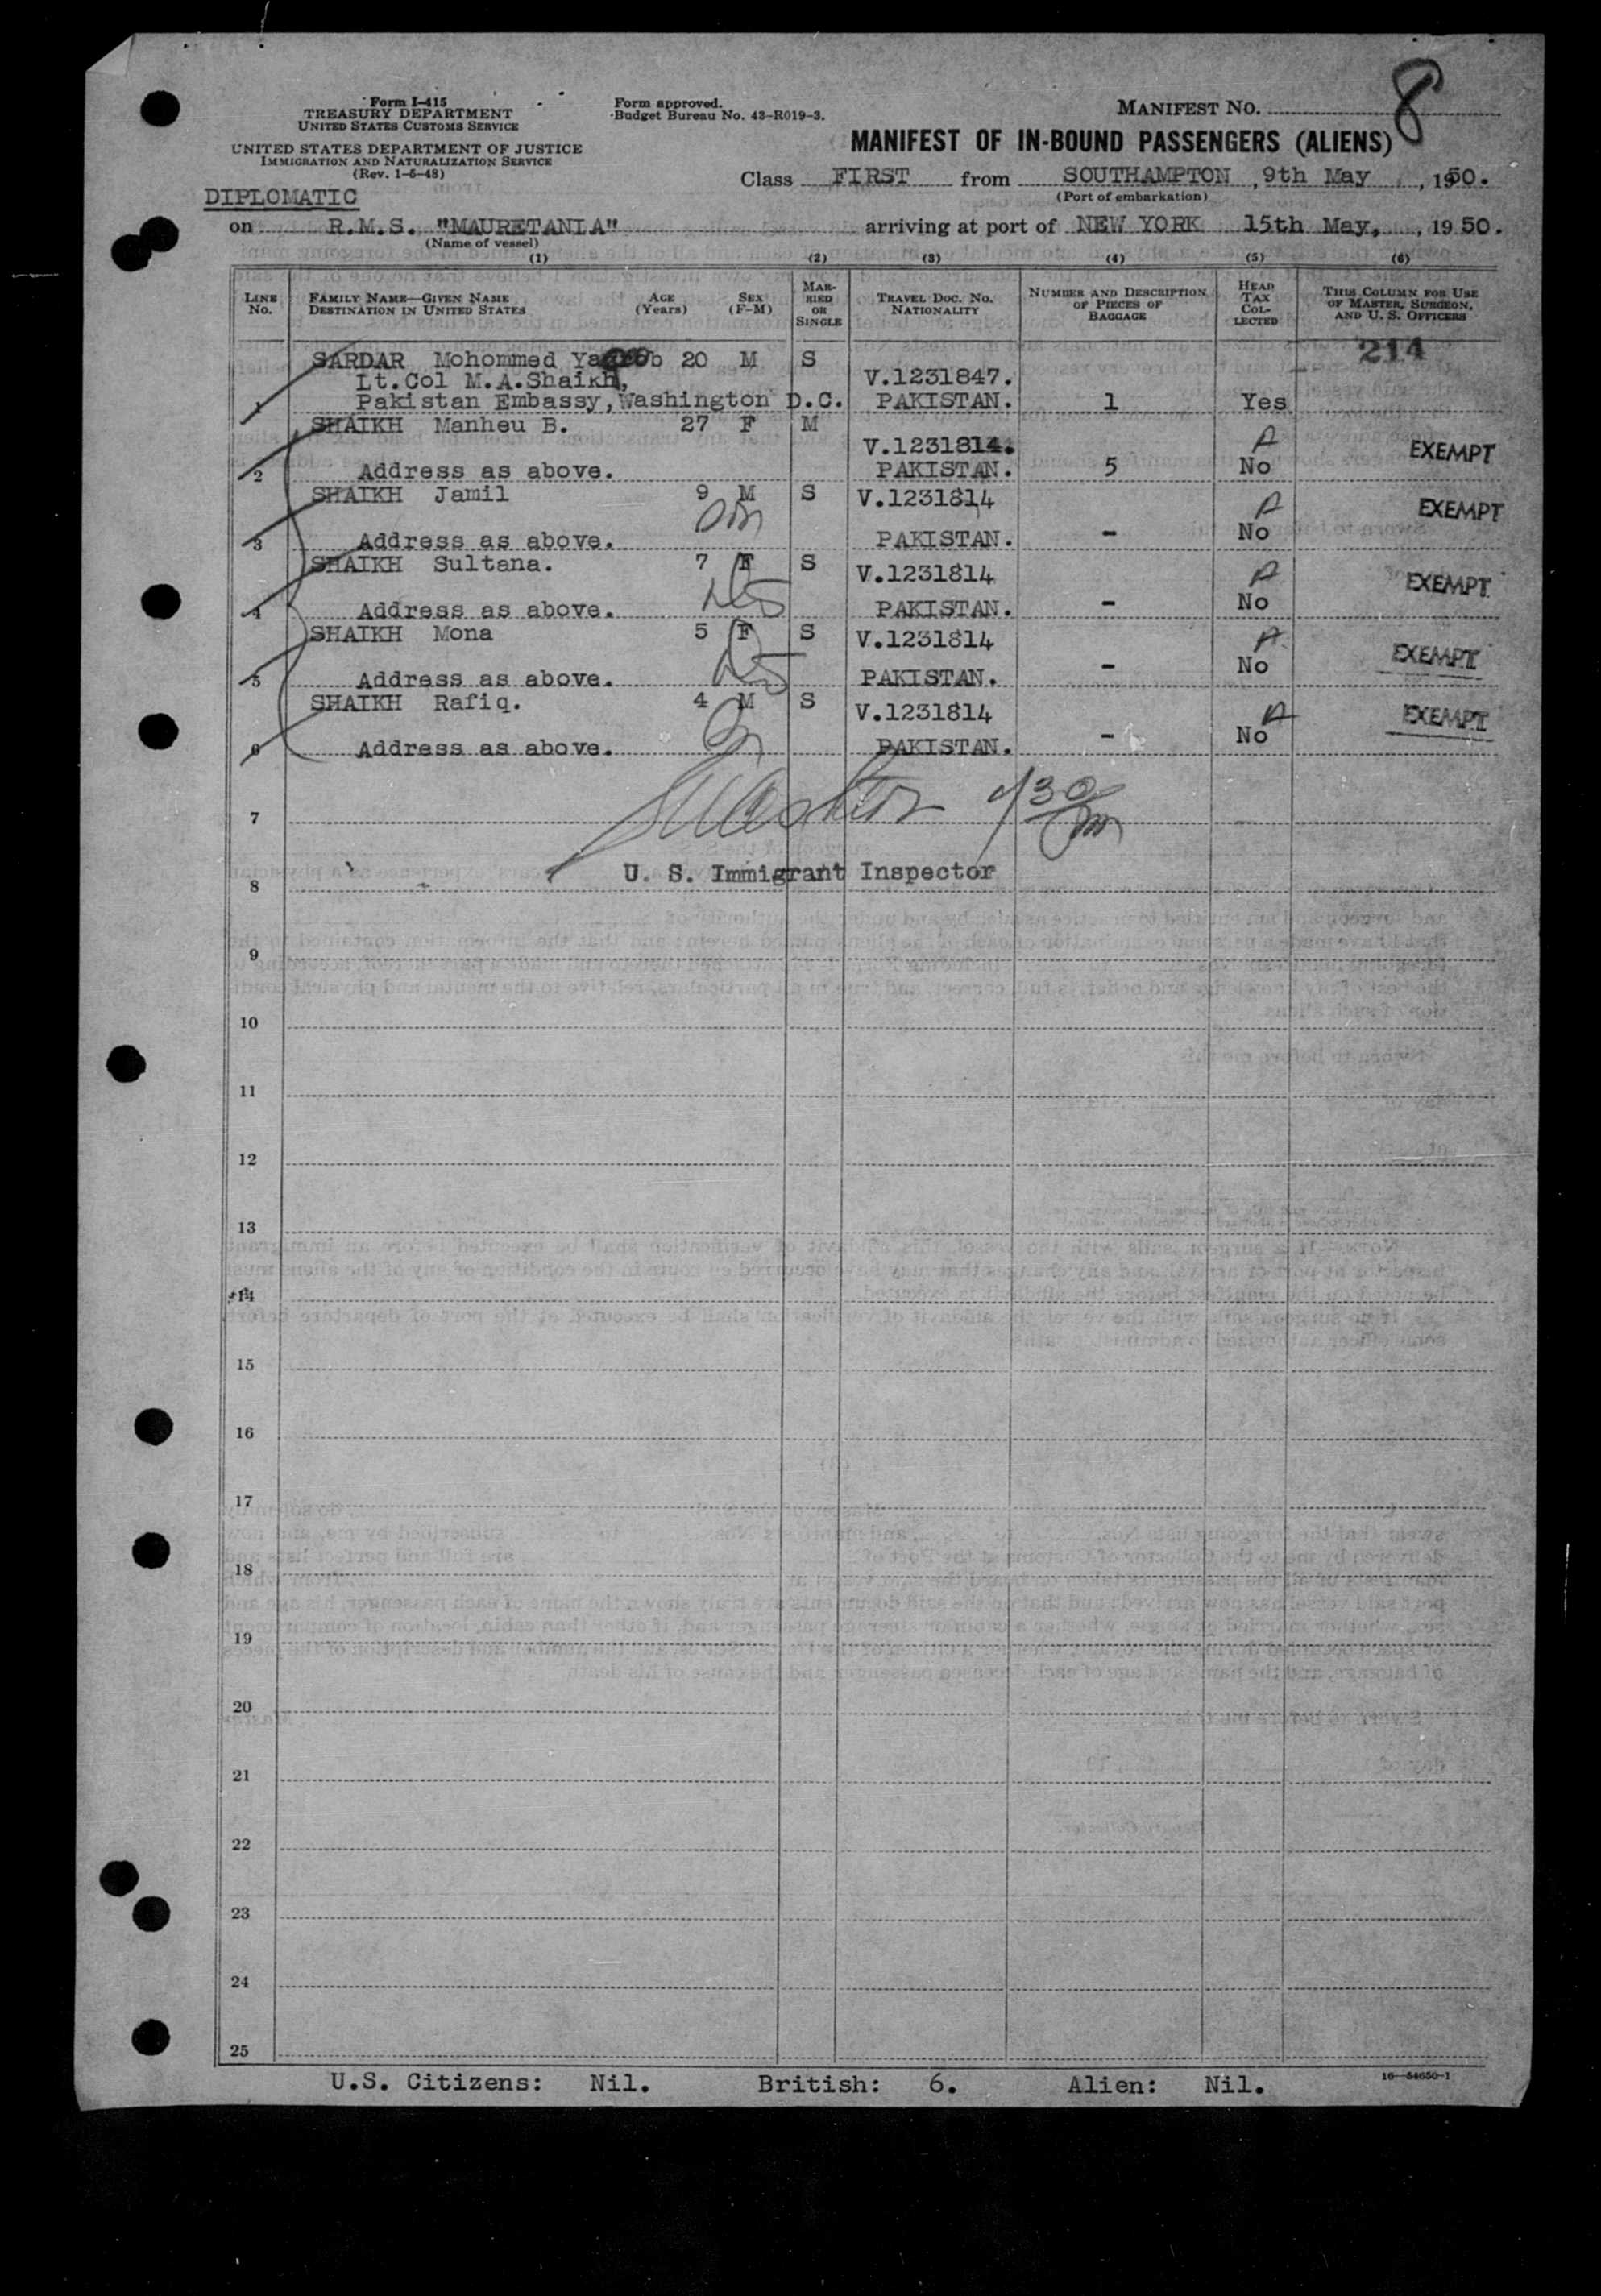 Form I-415
TREASURY DEPARTMENT
UNITED STATES CUSTOMS SERVICE
UNITED STATES DEPARTMENT OF JUSTICE
IMMIGRATION AND NATURALIZATION SERVICE
(Rev. 1-6-48)
Form approved.
Budget Bureau No. 43-R019-3.
MANIFEST NO. 8
MANIFEST OF IN-BOUND PASSENGERS (ALIENS)
Class FIRST from SOUTHAMPTON, 9th May, 1950.
(Port of embarkation)
DIPLOMATIC
on R.M.S. "MAURETANIA" arriving at port of NEW YORK 15th May, 1950.
(Name of vessel)
(1) (2) (3) (4) (5) (6)
LINE No. FAMILY NAME—GIVEN NAME DESTINATION IN UNITED STATES AGE (Years) SEX (F-M) MARRIED OR SINGLE TRAVEL DOC. No. NATIONALITY NUMBER AND DESCRIPTION OF PIECES OF BAGGAGE HEAD TAX COLLECTED THIS COLUMN FOR USE OF MASTER, SURGEON, AND U. S. OFFICERS
214
SARDAR Mohommed 20 M S
Lt.Col M.A.Shaikh, V.1231847.
1 Pakistan Embassy, Washington D.C. PAKISTAN. 1 Yes
SHAIKH Manheu B. 27 F M
V.1231814. A EXEMPT
2 Address as above. PAKISTAN. 5 No
SHAIKH Jamil 9 M S V.1231814 A EXEMPT
3 Address as above. PAKISTAN. - No
SHAIKH Sultana. 7 F S V.1231814 A EXEMPT
4 Address as above. PAKISTAN. - No
SHAIKH Mona 5 F S V.1231814 A EXEMPT
5 Address as above. PAKISTAN. - No
SHAIKH Rafiq. 4 M S V.1231814 A EXEMPT
6 Address as above. PAKISTAN. - No
7
U. S. Immigrant Inspector
8
9
10
11
12
13
14
15
16
17
18
19
20
21
22
23
24
25
U.S. Citizens: Nil. British: 6. Alien: Nil.
16—54650-1